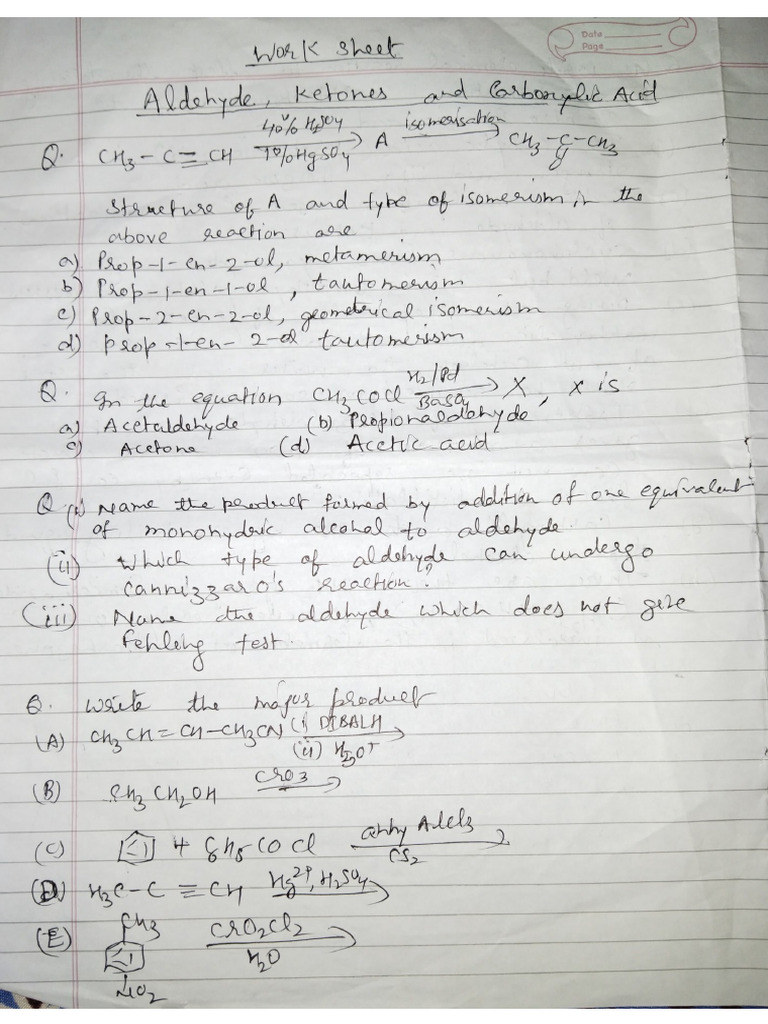 Work Sheet
Date
Page
Aldehyde, Ketones and Carboxylic Acid
Q. CH3-C≡CH 40% H2SO4 / 1% HgSO4 → A isomerisation → CH3-C-CH3
Structure of A and type of isomerism in the
above reaction are
a) Prop-1-en-2-ol, metamerism
b) Prop-1-en-1-ol, tautomerism
c) Prop-2-en-2-ol, geometrical isomerism
d) prop-1-en-2-ol tautomerism
Q. In the equation CH3COCl H2/Pd / BaSO4 → X, X is
a) Acetaldehyde (b) Propionaldehyde
c) Acetone (d) Acetic acid
Q (i) Name the product formed by addition of one equivalent
of monohydric alcohol to aldehyde.
(ii) Which type of aldehyde can undergo
cannizzaro's reaction?
(iii) Name the aldehyde which does not give
Fehling test.
Q. Write the major product
(A) CH3CH=CH-CH2CN (i) DIBALH / (ii) H3O+ →
(B) CH3CH2OH CrO3 →
(C) + C6H5COCl anhy AlCl3 / CS2 →
(D) H3C-C≡CH Hg2+, H2SO4 →
(E) CH3 CrO2Cl2 / H2O →
NO2